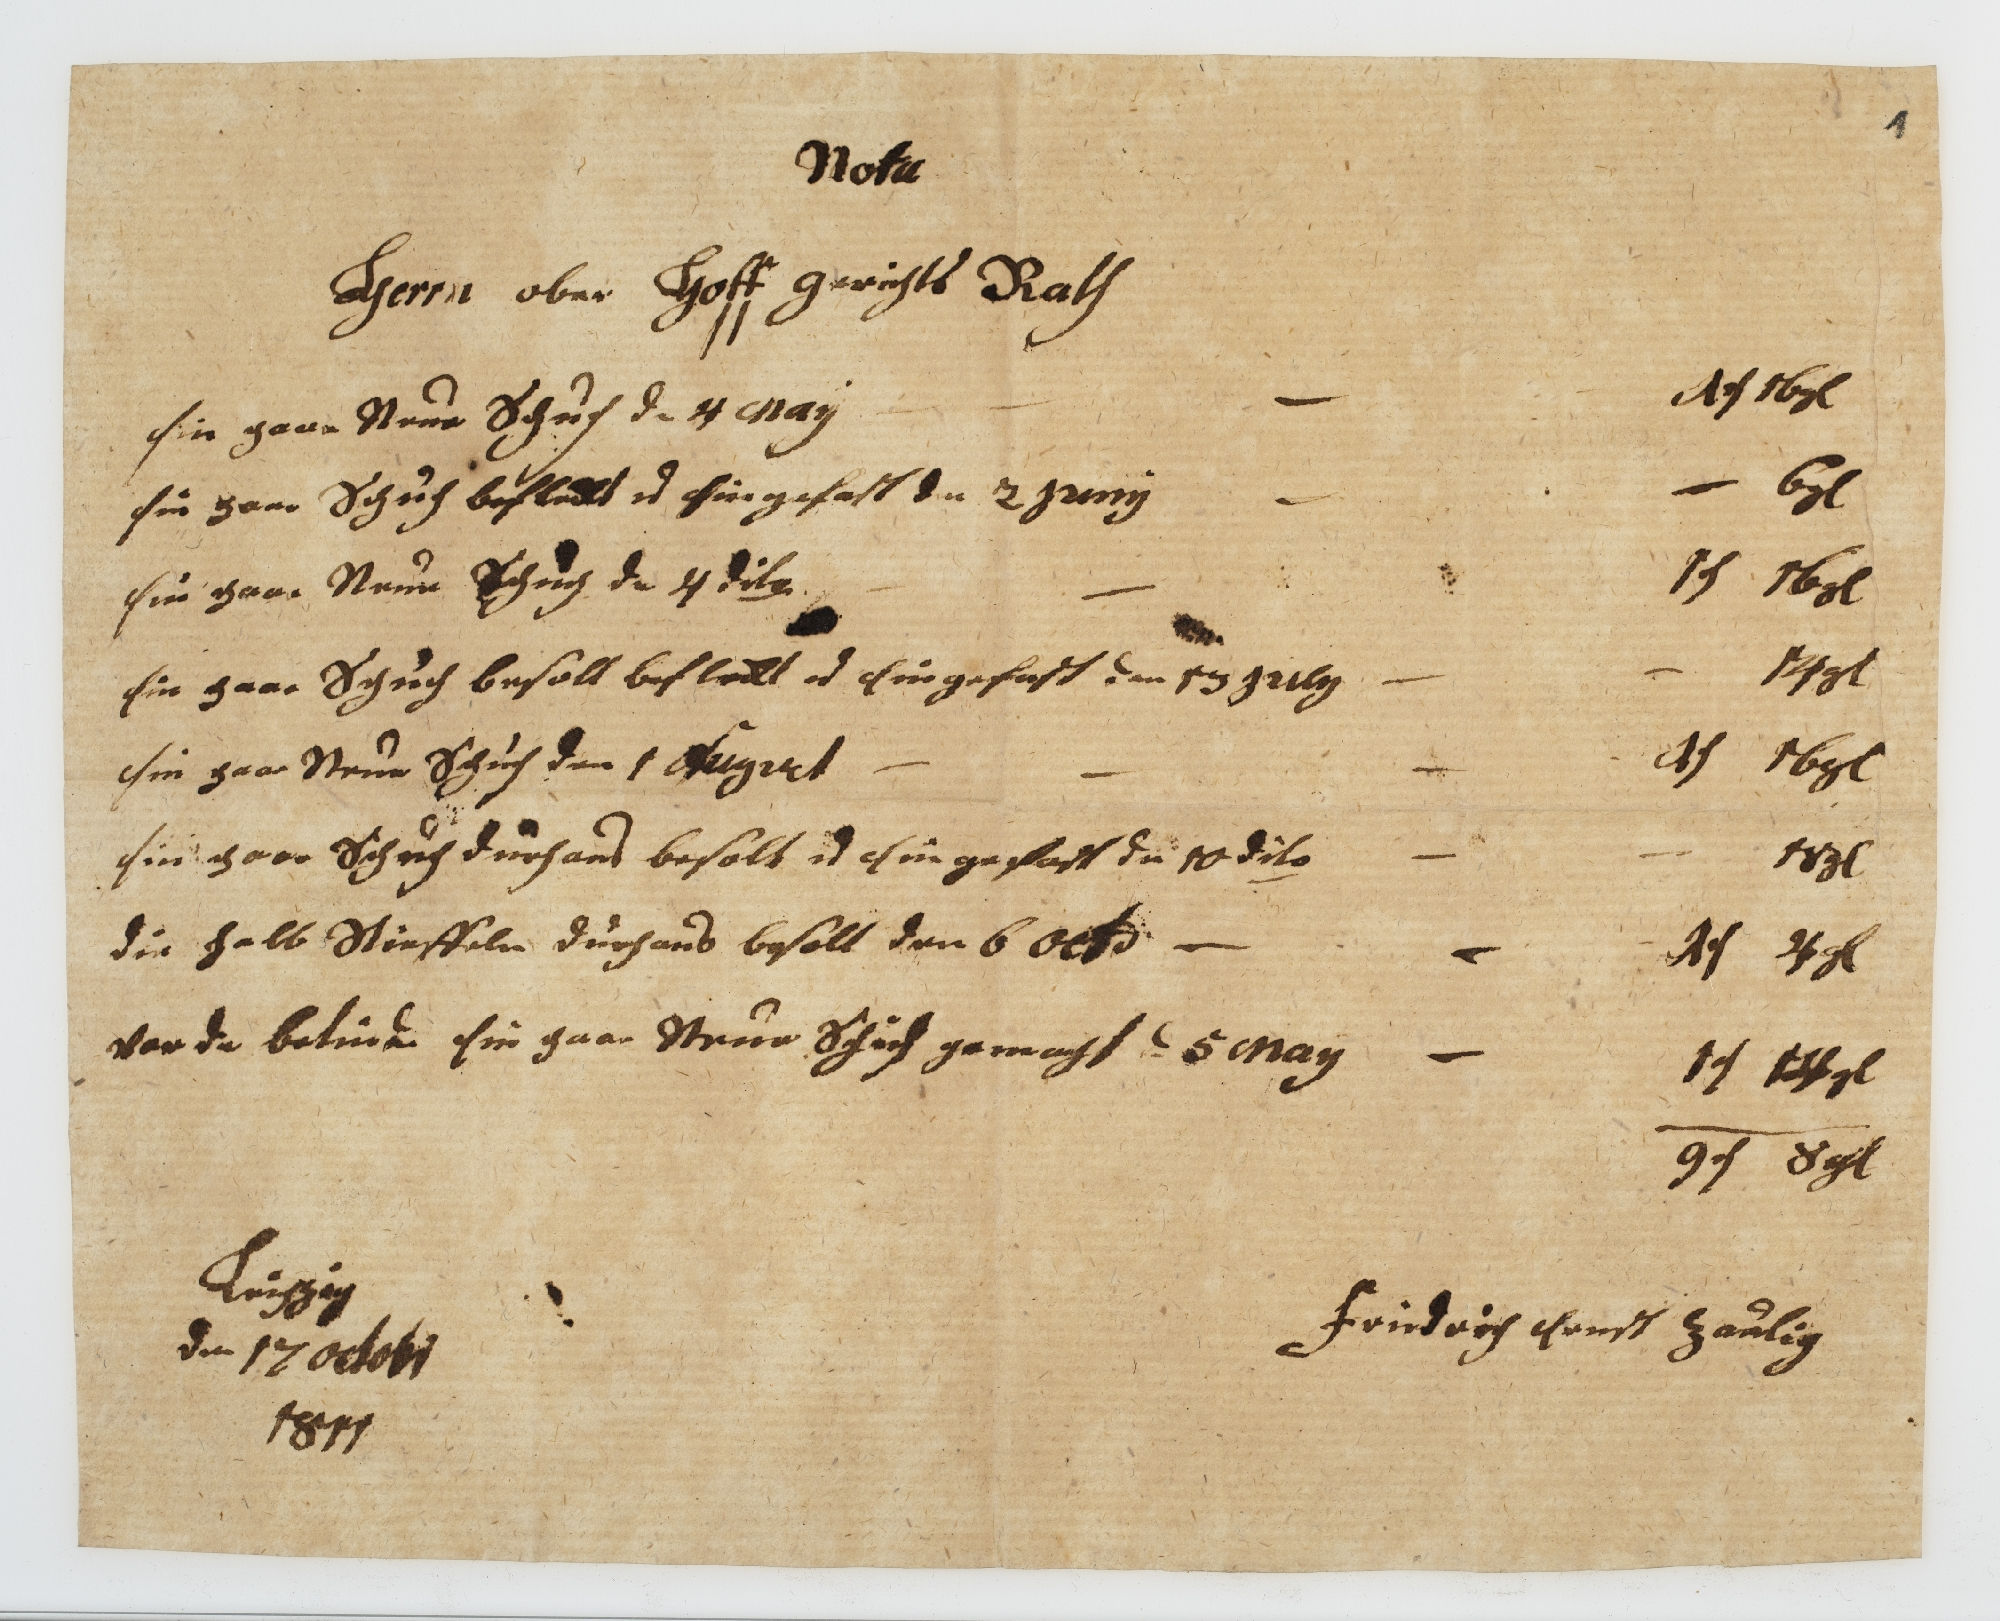 1
Nota
Herrn ober Hoff gerichts Rath
Ein paar Neue Schuh de 4 May — — — 1 rh 16 gl
Ein paar Schuh befleckt u Eingefast den 2 Juny — — 6 gl
Ein paar Neue Schuh de 4 dito — — 1 rh 16 gl
Ein paar Schuh besolt befleckt u Eingefast den 13 July — — 14 gl
Ein paar Neue Schuh den 1 August — — — 1 rh 16 gl
Ein paar Schuh durhaus besolt u Eingefast de 10 dito — — 18 gl
die halb Stieffeln durhaus besolt den 6 octo — — 1 rh 4 gl
vor de Ein paar Neue Schuh gemacht d 5 May — 1 rh 14 gl
9 rh 8 gl
Leipzig
den 17 octobr
1811
Friedrich Ernst